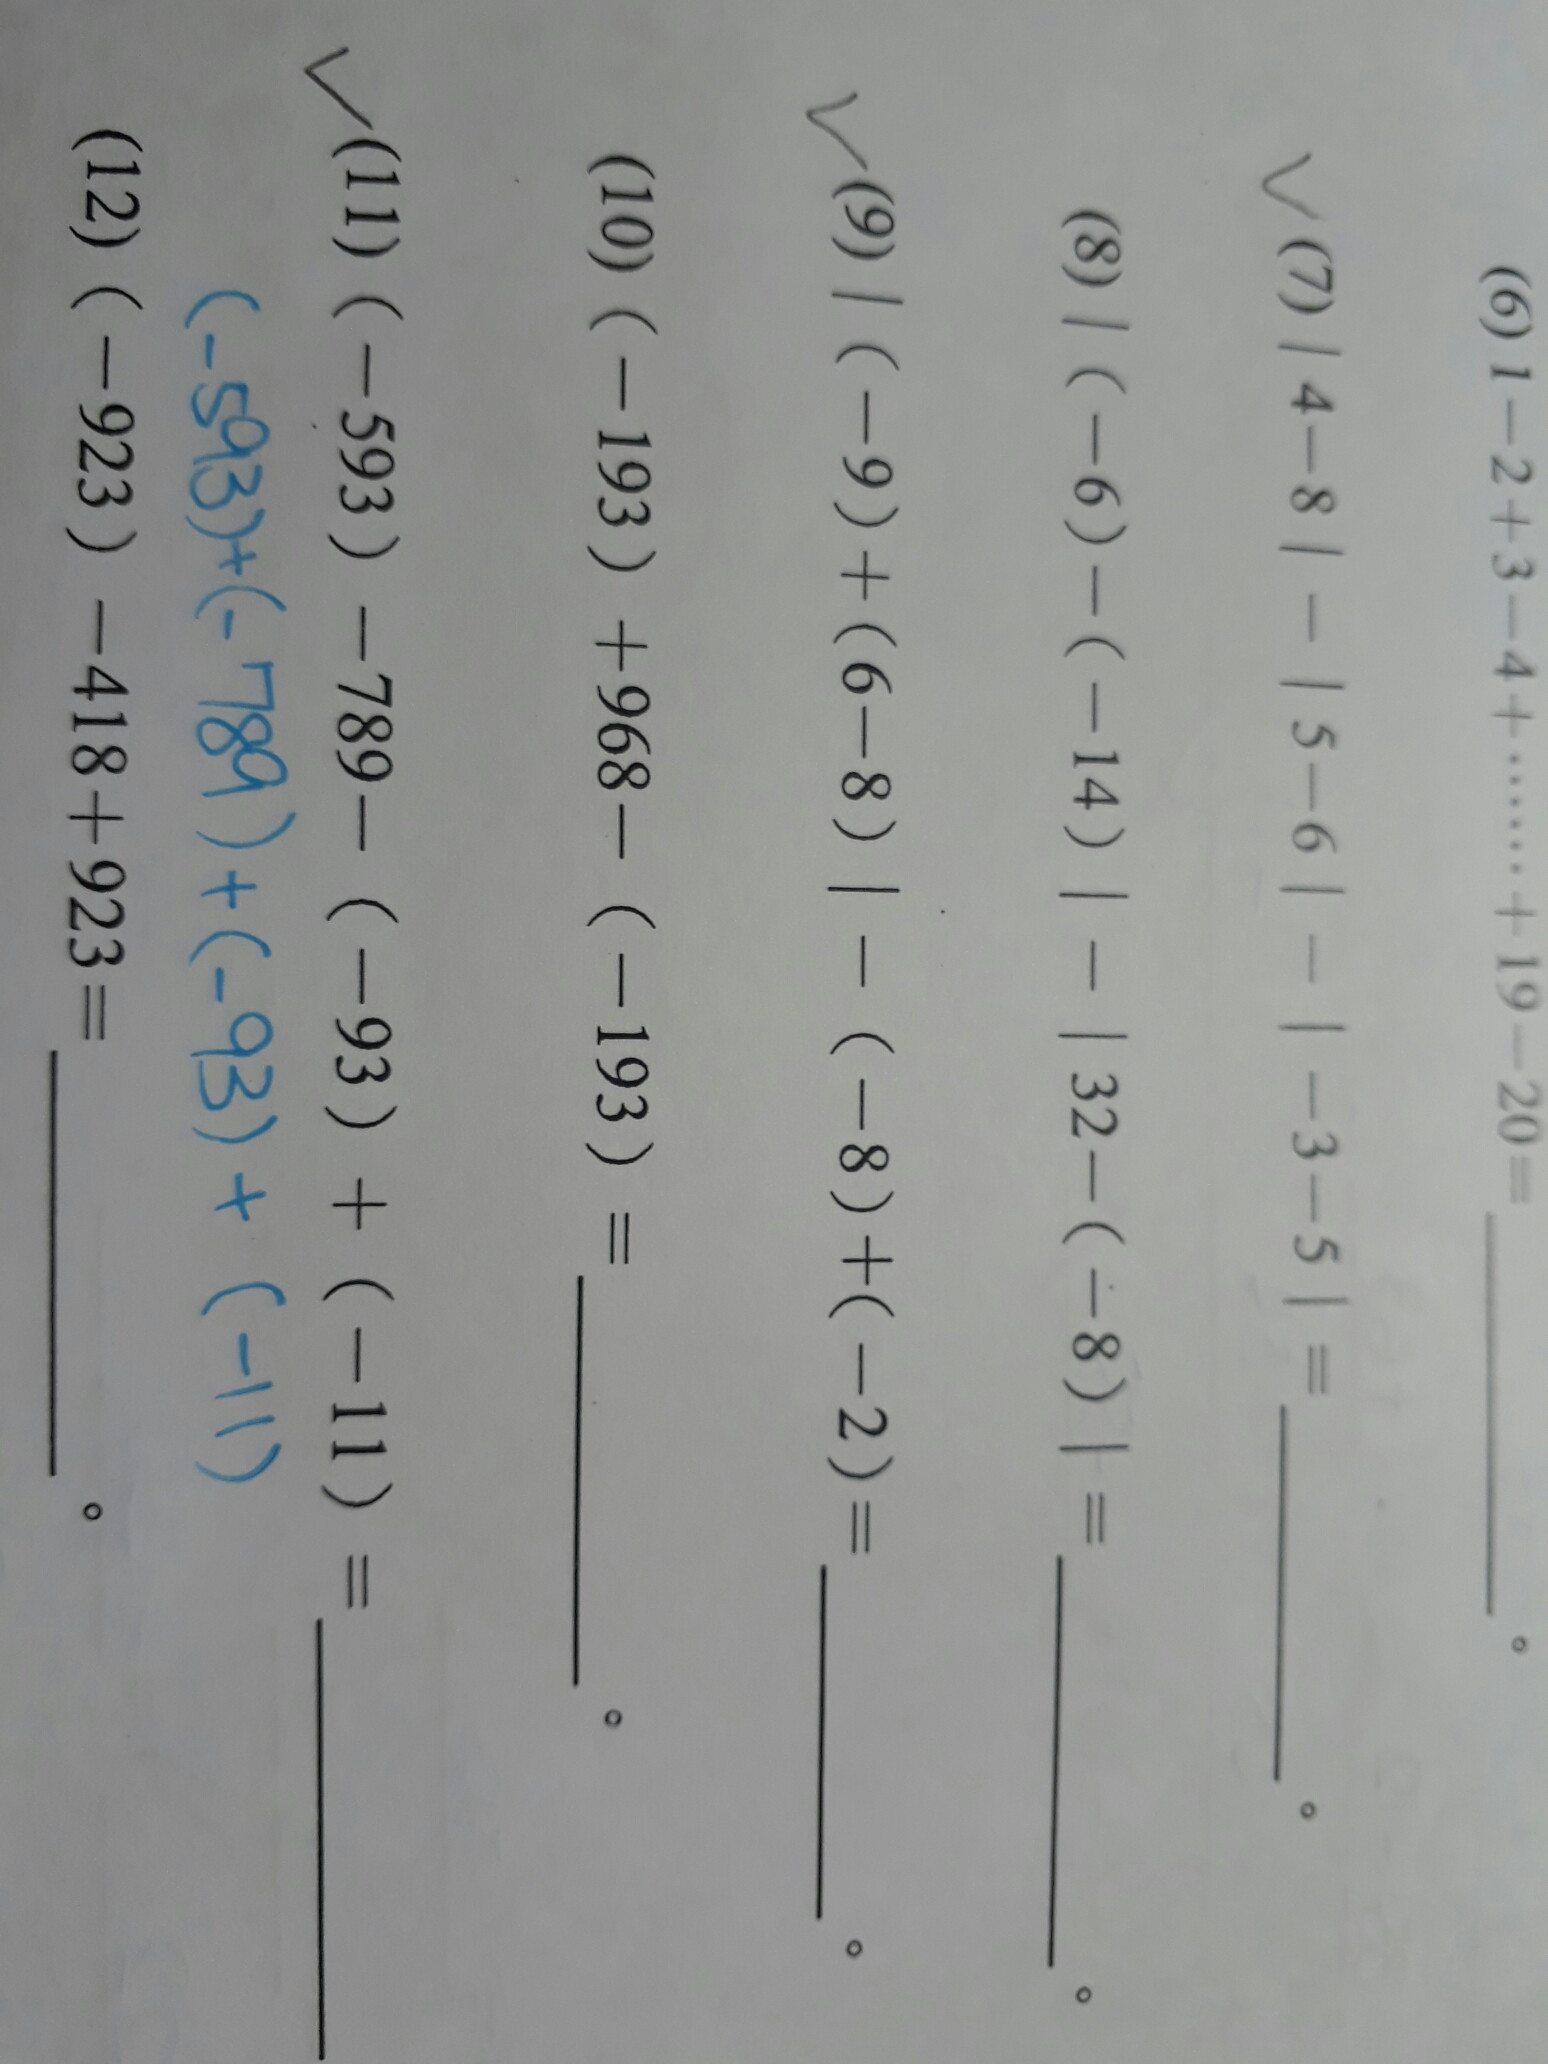 (6) 1－2＋3－4＋……＋19－20＝________。
✓(7)｜4－8｜－｜5－6｜－｜－3－5｜＝________。
(8)｜(－6)－(－14)｜－｜32－(－8)｜＝________。
✓(9)｜(－9)＋(6－8)｜－(－8)＋(－2)＝________。
(10)(－193)＋968－(－193)＝________。
✓(11)(－593)－789－(－93)＋(－11)＝________
(-593)+(-789)+(-93)+(-11)
(12)(－923)－418＋923＝________。